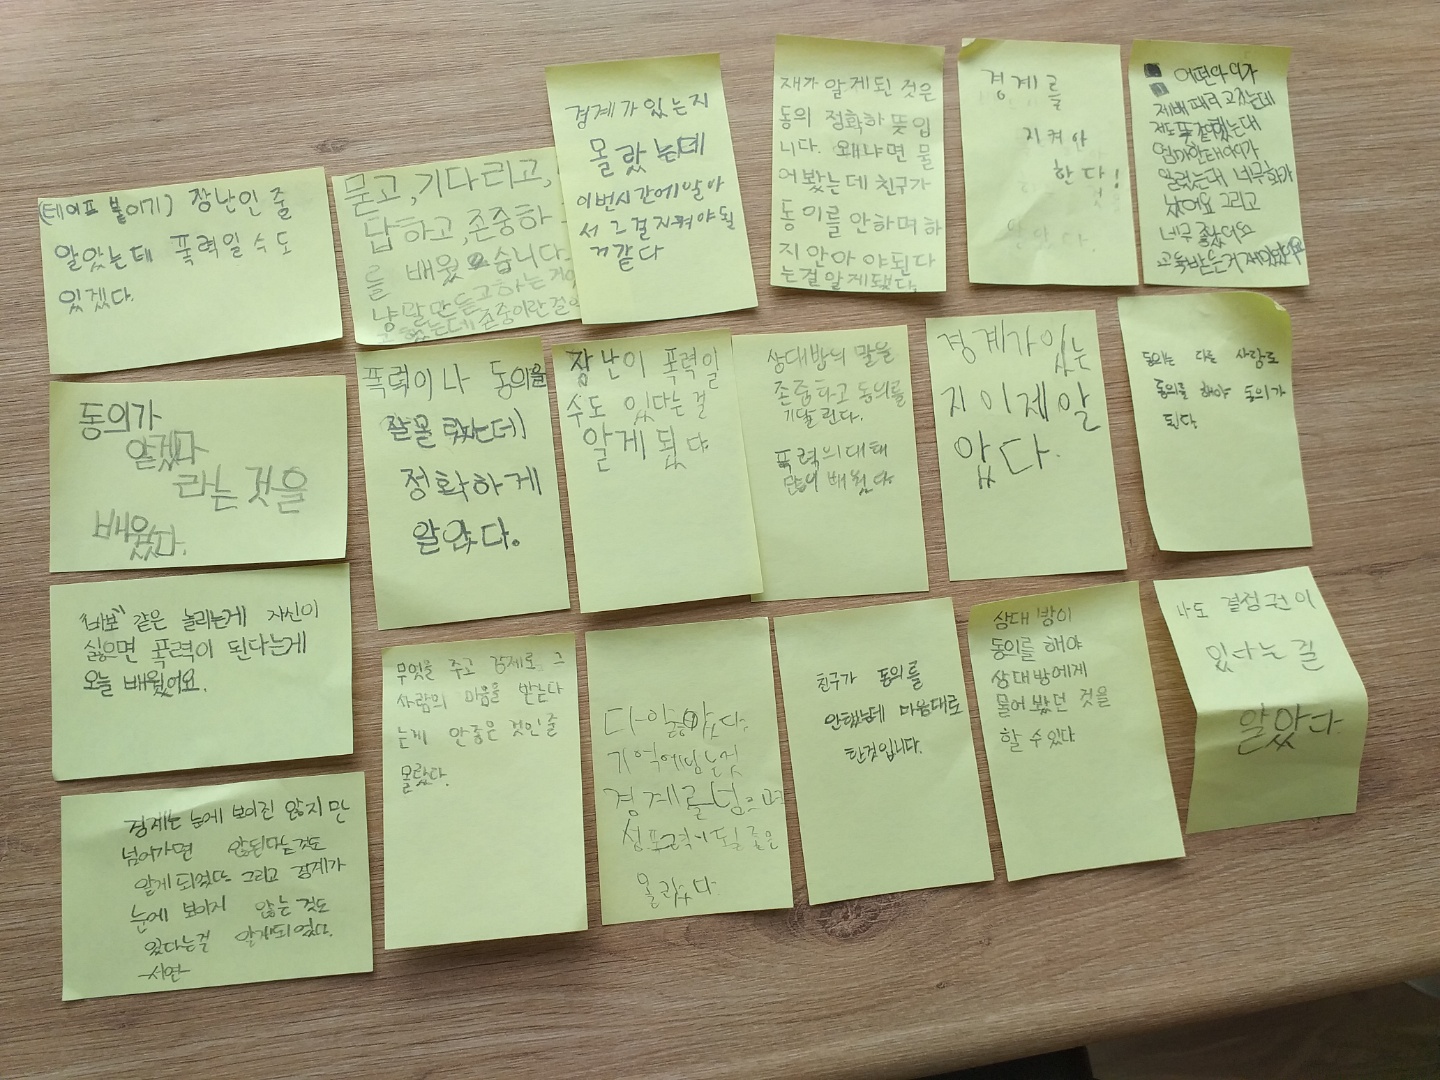 (테이프 붙이기) 장난인 줄
알았는데 폭력일 수도
있겠다.
묻고, 기다리고,
답하고, 존중하
를 배웠습니다.
냥 말만 듣고하는
존중이란걸
경계가 있는지
몰랐는데
이번시간에알아
서 그걸 지켜야될
거같다
재가 알게된 것은
동의 정확하 뜻입
니다. 왜냐면 물
어 봤는데 친구가
동이를 안하며 하
지 안아 야된다
는걸 알게됐다.
경계를
지켜야
한다!
어떤아이가
제배 때리고갔는데
제도 똑같했는대
엄마한태 애가
알렸는대 너무화가
났어요 그리고
너무 좋았어요
교육받는거 재미있었어요
동의가
알겠다
라는 것을
배웠다.
폭력이나 동의을
잘몰랐는데)
정확하게
알았다.
장난이 폭력일
수도 있다는 걸
알게 됬다
상대방의 말을
존중하고 동의를
기달린다.
폭력의대해
많이 배웠다
경계가있는
지이제알
았다.
동의는 다른 사람도
동의를 해야 동의가
된다
"바보" 같은 놀리는게 자신이
싫으면 폭력이 된다는게
오늘 배웠어요.
무엇을 주고 강제로 그
사람의 마음을 받는다
는게 안좋은 것인줄
몰랐다.
다 알았다.
기억에남는것
경계를 넘으
성폭력이될줄은
몰랐다
친구가 동의를
안했는데 마음대로
한것입니다.
상대방이
동의를 해야
상대방에게
물어봤던 것을
할 수 있다
나도 결정권이
있다는 걸
알았다.
경계는 눈에 보이진 않지만
넘어가면 않된다는것도
알게 되었다. 그리고 경계가
눈에 보이지 않는 것도
있다는걸 알게되었다.
-서연-